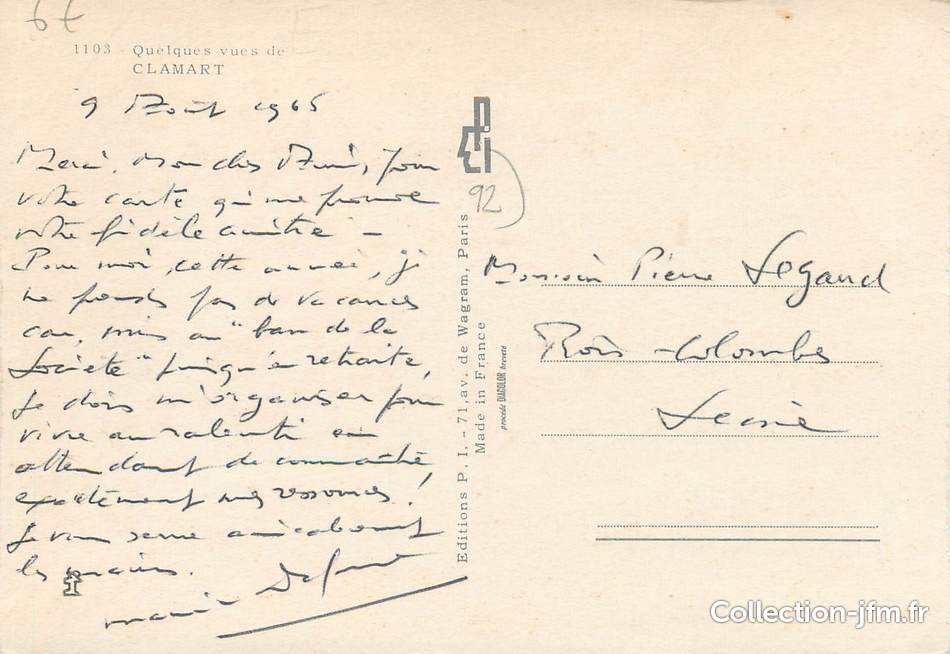 6€
1103 - Quelques vues de
CLAMART
9 Août 1965
Merci, Mon cher Ami, pour
votre carte qui me prouve
votre fidèle amitié -
Pour moi, cette année, je
ne prends pas de vacances
car, mis au "ban de la
Société" puisqu'en retraite,
je dois m'organiser pour
vivre au ralenti en
attendant de connaître
exactement mes ressources!
Je vous serre amicalement
les mains.
Editions P. I. - 71, av. de Wagram, Paris
Made in France
procédé DIAGOLOR breveté
92
Monsieur Pierre Legaud
Bois-Colombes
Seine
Collection-jfm.fr